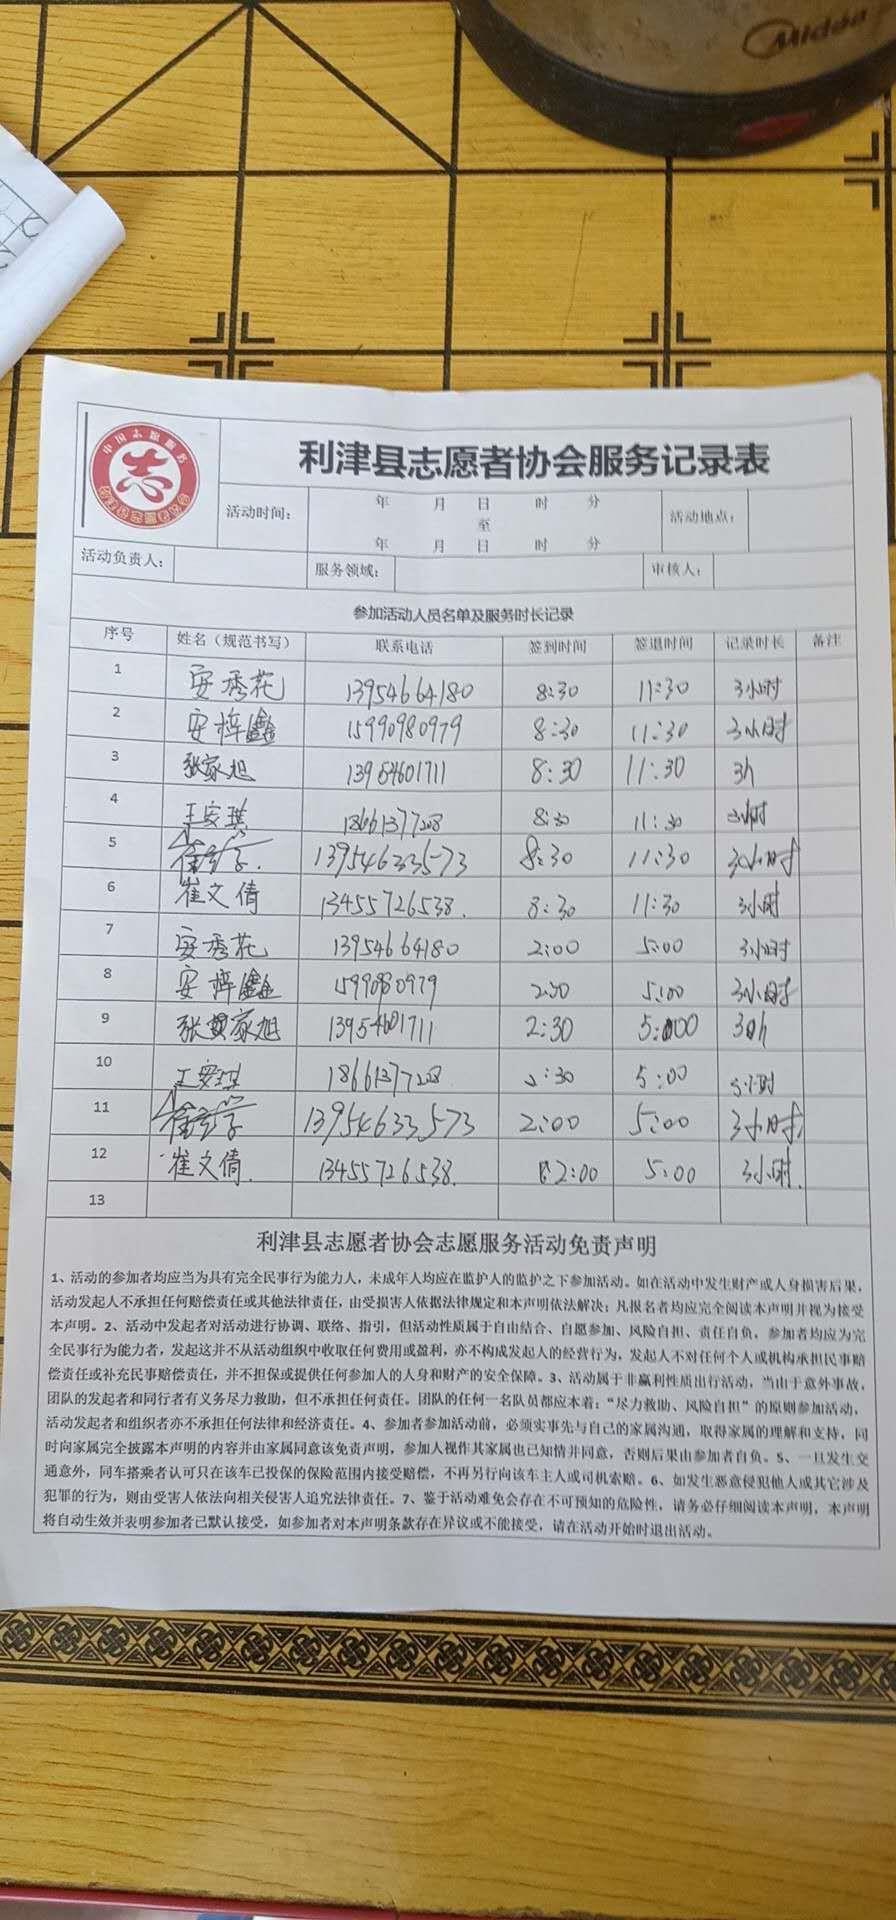 Midea
中国志愿服务
志
利津县志愿者协会服务记录表
活动时间： 年 月 日 时 分 至 年 月 日 时 分 活动地点：
活动负责人： 服务领域： 审核人：
参加活动人员名单及服务时长记录
序号 姓名（规范书写） 联系电话 签到时间 签退时间 记录时长 备注
1 安秀花 13954664180 8:30 11:30 3小时
2 安梓鑫 15990980979 8:30 11:30 3小时
3 张家旭 13954601711 8:30 11:30 3h
4 王安琪 18661377208 8:30 11:30 3小时
5 13954633573 8:30 11:30 3小时
6 崔文倩 13455726538. 8:30 11:30 3小时
7 安秀花 13954664180 2:00 5:00 3小时
8 安梓鑫 15990980979 2:00 5:00 3小时
9 张家旭 13954601711 2:30 5:00 3h
10 王安琪 18661377208 2:30 5:00 小时
11 13954633573 2:00 5:00 3小时
12 崔文倩. 13455726538. 2:00 5:00 3小时.
13
利津县志愿者协会志愿服务活动免责声明
1、活动的参加者均应当为具有完全民事行为能力人，未成年人均应在监护人的监护之下参加活动。如在活动中发生财产或人身损害后果，
活动发起人不承担任何赔偿责任或其他法律责任，由受损害人依据法律规定和本声明依法解决；凡报名者均应完全阅读本声明并视为接受
本声明。2、活动中发起者对活动进行协调、联络、指引，但活动性质属于自由结合、自愿参加、风险自担、责任自负，参加者均应为完
全民事行为能力者，发起这并不从活动组织中收取任何费用或盈利，亦不构成发起人的经营行为，发起人不对任何个人或机构承担民事赔
偿责任或补充民事赔偿责任，并不担保或提供任何参加人的人身和财产的安全保障。3、活动属于非赢利性质出行活动，当由于意外事故，
团队的发起者和同行者有义务尽力救助，但不承担任何责任。团队的任何一名队员都应本着：“尽力救助、风险自担”的原则参加活动，
活动发起者和组织者亦不承担任何法律和经济责任。4、参加者参加活动前，必须实事先与自己的家属沟通，取得家属的理解和支持，同
时向家属完全披露本声明的内容并由家属同意该免责声明，参加人视作其家属也已知情并同意，否则后果由参加者自负。5、一旦发生交
通意外，同车搭乘者认可只在该车已投保的保险范围内接受赔偿，不再另行向该车主人或司机索赔。6、如发生恶意侵犯他人或其它涉及
犯罪的行为，则由受害人依法向相关侵害人追究法律责任。7、鉴于活动难免会存在不可预知的危险性，请务必仔细阅读本声明，本声明
将自动生效并表明参加者已默认接受，如参加者对本声明条款存在异议或不能接受，请在活动开始时退出活动。